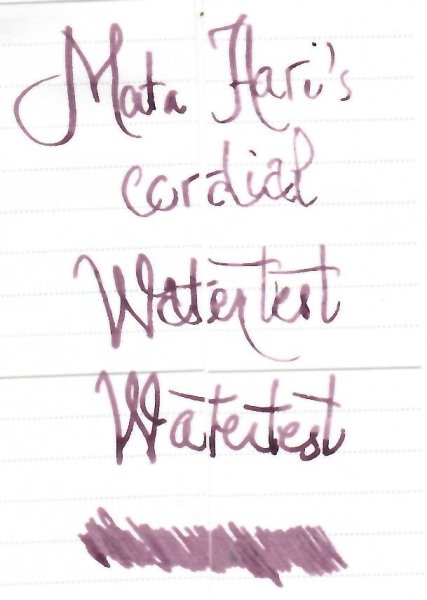 Mata Hari's
cordial
Watertest
Watertest